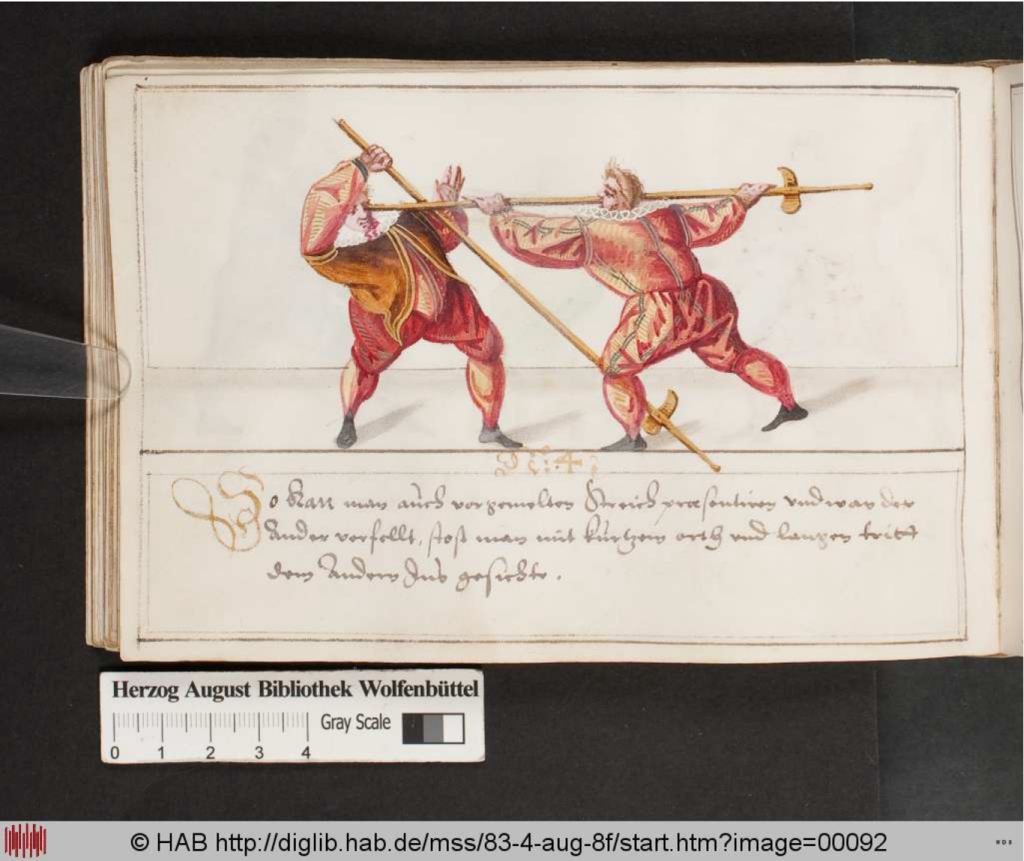 So Kan man auch vorgemelten Streich præsentiren vnd wan der
Ander verfellt, stost man mit kurtzem orth vnd langen tritt
dem Andern Ins gesichte.
Herzog August Bibliothek Wolfenbüttel
Gray Scale
0 1 2 3 4
© HAB http://diglib.hab.de/mss/83-4-aug-8f/start.htm?image=00092